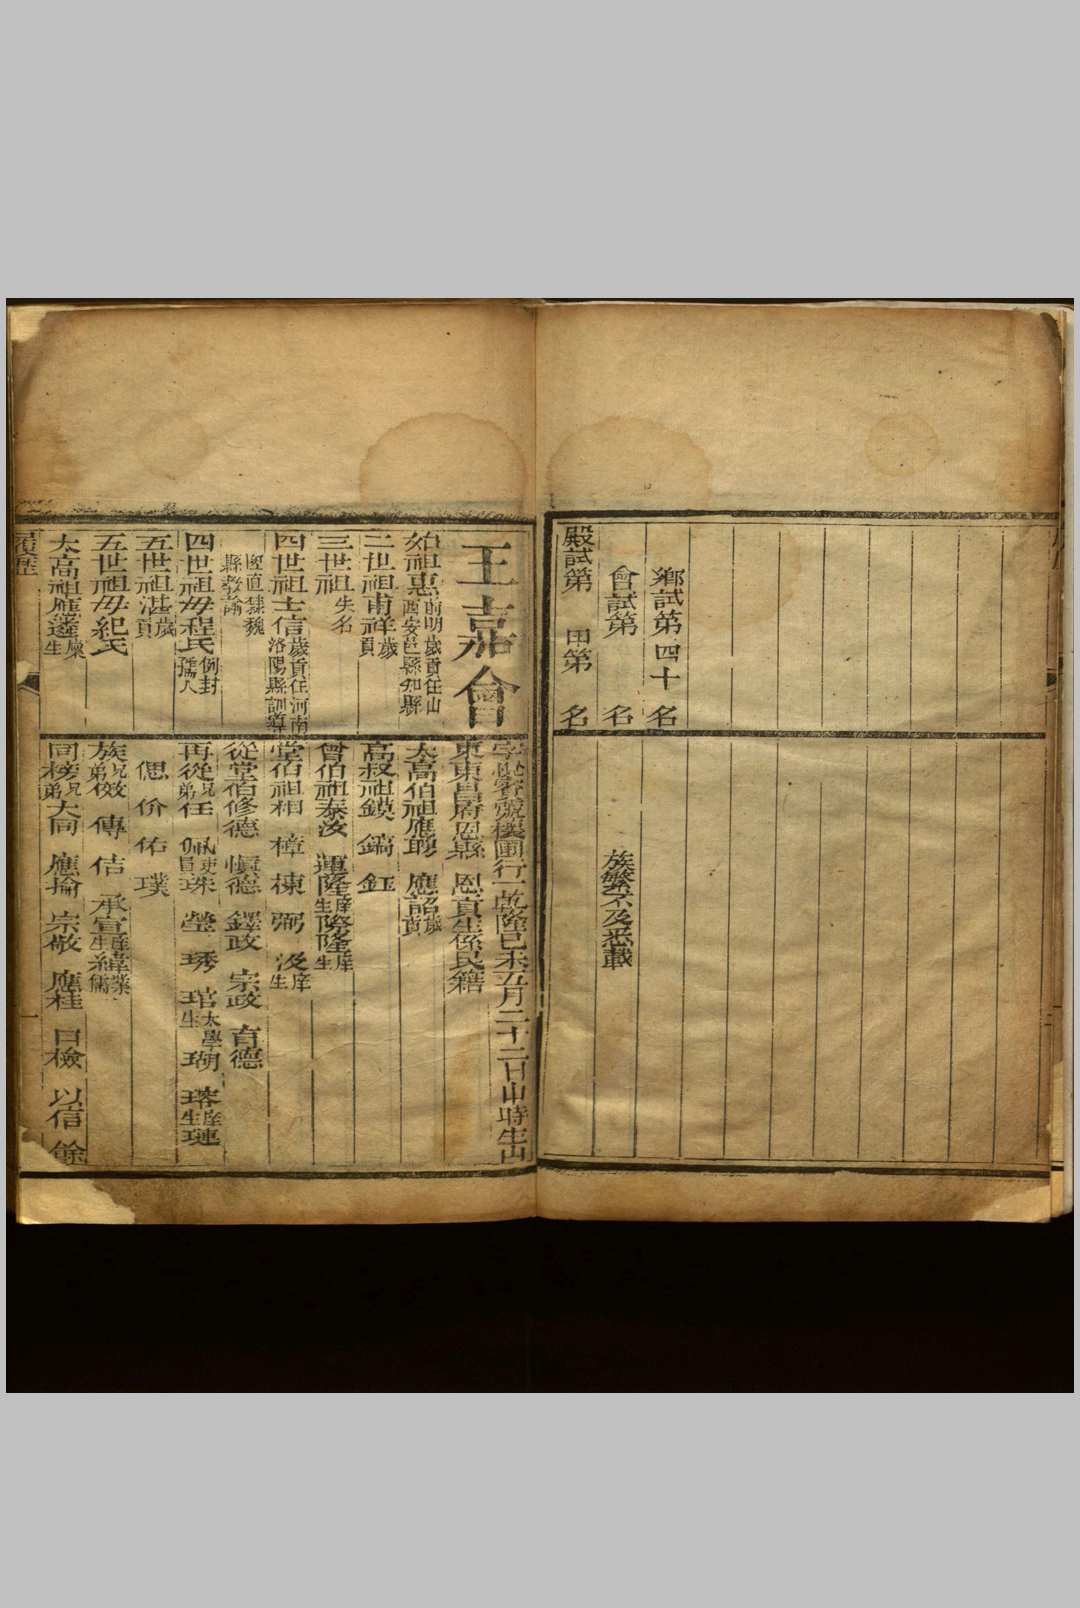 鄉試第四十 名
會試第 名
殿試第 甲第 名
族繁不及悉載
王嘉會
始祖惠前明歲貢任山西安邑縣知縣
二世祖甫祥歲貢
三世祖失名
四世祖士信歲貢任河南洛陽縣訓導
直隸魏縣教諭
四世祖母程氏例封孺人
五世祖湛歲貢
五世祖母紀氏
太高祖應蓬廩生
行一乾隆己未五月二十二日 時生山
東東昌府恩縣 恩貢生係民籍
太高伯祖應聘 應詔歲貢
高叔祖鏌 鎬 鈺
曾伯祖泰汝 運隆庠生 隆庠生
堂伯祖相 樟 棟 弼 汲庠生
從堂伯修德 慎德 鐸政 宗政 育德
再從兄弟任 珮吏員 珠 瑩 琇 琯太學生 瑚 瑢庠生 璉
偲 价 佑 璞
族兄弟俲 傳 佶 承宣庠生 緯業儒
同榜兄弟大同 應掄 宗敬 應桂 曰檢 以信 餘
履歷
一